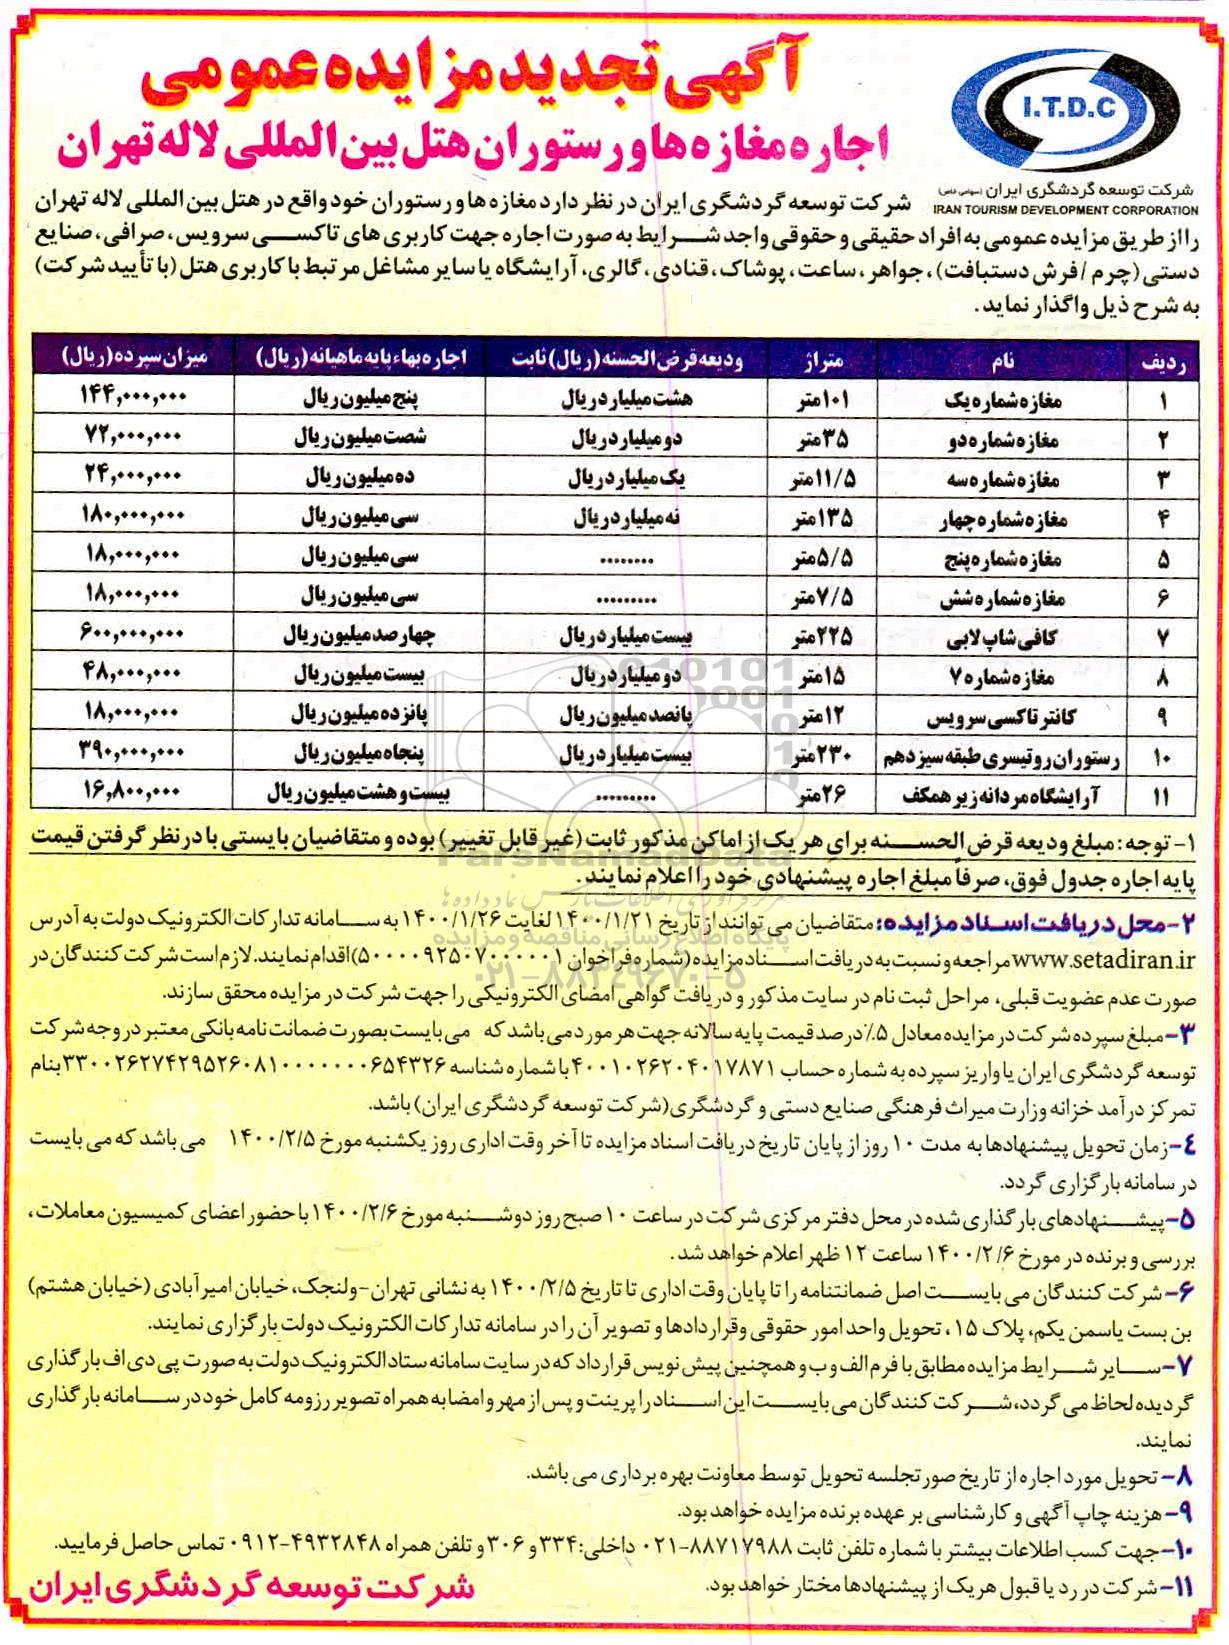 آگهی تجدید مزایده عمومی
اجاره مغازه ها و رستوران هتل بین المللی لاله تهران
I.T.D.C
شرکت توسعه گردشگری ایران (سهامی خاص)
IRAN TOURISM DEVELOPMENT CORPORATION
شرکت توسعه گردشگری ایران در نظر دارد مغازه ها و رستوران خود واقع در هتل بین المللی لاله تهران
را از طریق مزایده عمومی به افراد حقیقی و حقوقی واجد شرایط به صورت اجاره جهت کاربری های تاکسی سرویس، صرافی، صنایع
دستی (چرم / فرش دستبافت)، جواهر، ساعت، پوشاک، قنادی، گالری، آرایشگاه یا سایر مشاغل مرتبط با کاربری هتل (با تأیید شرکت)
به شرح ذیل واگذار نماید.
ردیف | نام | متراژ | ودیعه قرض الحسنه (ریال) ثابت | اجاره بهاء پایه ماهیانه (ریال) | میزان سپرده (ریال)
۱ | مغازه شماره یک | ۱۰۱ متر | هشت میلیارد ریال | پنج میلیون ریال | ۱۴۴,۰۰۰,۰۰۰
۲ | مغازه شماره دو | ۳۵ متر | دو میلیارد ریال | شصت میلیون ریال | ۷۲,۰۰۰,۰۰۰
۳ | مغازه شماره سه | ۱۱/۵ متر | یک میلیارد ریال | ده میلیون ریال | ۲۴,۰۰۰,۰۰۰
۴ | مغازه شماره چهار | ۱۳۵ متر | نه میلیارد ریال | سی میلیون ریال | ۱۸۰,۰۰۰,۰۰۰
۵ | مغازه شماره پنج | ۵/۵ متر | ........ | سی میلیون ریال | ۱۸,۰۰۰,۰۰۰
۶ | مغازه شماره شش | ۷/۵ متر | ......... | سی میلیون ریال | ۱۸,۰۰۰,۰۰۰
۷ | کافی شاپ لابی | ۲۲۵ متر | بیست میلیارد ریال | چهارصد میلیون ریال | ۶۰۰,۰۰۰,۰۰۰
۸ | مغازه شماره ۷ | ۱۵ متر | دو میلیارد ریال | بیست میلیون ریال | ۴۸,۰۰۰,۰۰۰
۹ | کانتر تاکسی سرویس | ۱۲ متر | پانصد میلیون ریال | پانزده میلیون ریال | ۱۸,۰۰۰,۰۰۰
۱۰ | رستوران روتیسری طبقه سیزدهم | ۲۳۰ متر | بیست میلیارد ریال | پنجاه میلیون ریال | ۳۹۰,۰۰۰,۰۰۰
۱۱ | آرایشگاه مردانه زیر همکف | ۲۶ متر | ......... | بیست و هشت میلیون ریال | ۱۶,۸۰۰,۰۰۰
۱- توجه: مبلغ ودیعه قرض الحسنه برای هر یک از اماکن مذکور ثابت (غیر قابل تغییر) بوده و متقاضیان بایستی با در نظر گرفتن قیمت
پایه اجاره جدول فوق، صرفاً مبلغ اجاره پیشنهادی خود را اعلام نمایند.
۲- محل دریافت اسناد مزایده: متقاضیان می توانند از تاریخ ۱۴۰۰/۱/۲۱ لغایت ۱۴۰۰/۱/۲۶ به سامانه تدارکات الکترونیک دولت به آدرس
www.setadiran.ir مراجعه و نسبت به دریافت اسناد مزایده (شماره فراخوان ۵۰۰۰۰۹۲۵۰۷۰۰۰۰۰۱) اقدام نمایند. لازم است شرکت کنندگان در
صورت عدم عضویت قبلی، مراحل ثبت نام در سایت مذکور و دریافت گواهی امضای الکترونیکی را جهت شرکت در مزایده محقق سازند.
۳- مبلغ سپرده شرکت در مزایده معادل ۵٪ درصد قیمت پایه سالانه جهت هر مورد می باشد که می بایست بصورت ضمانت نامه بانکی معتبر در وجه شرکت
توسعه گردشگری ایران یا واریز سپرده به شماره حساب ۴۰۰۱۰۲۶۲۰۴۰۱۷۸۷۱ با شماره شناسه ۳۳۰۰۲۶۲۷۴۲۹۵۲۶۰۸۱۰۰۰۰۰۰۰۶۵۴۳۲۶ بنام
تمرکز درآمد خزانه وزارت میراث فرهنگی صنایع دستی و گردشگری (شرکت توسعه گردشگری ایران) باشد.
۴- زمان تحویل پیشنهادها به مدت ۱۰ روز از پایان تاریخ دریافت اسناد مزایده تا آخر وقت اداری روز یکشنبه مورخ ۱۴۰۰/۲/۵ می باشد که می بایست
در سامانه بارگزاری گردد.
۵- پیشنهادهای بارگذاری شده در محل دفتر مرکزی شرکت در ساعت ۱۰ صبح روز دوشنبه مورخ ۱۴۰۰/۲/۶ با حضور اعضای کمیسیون معاملات،
بررسی و برنده در مورخ ۱۴۰۰/۲/۶ ساعت ۱۲ ظهر اعلام خواهد شد.
۶- شرکت کنندگان می بایست اصل ضمانتنامه را تا پایان وقت اداری تا تاریخ ۱۴۰۰/۲/۵ به نشانی تهران - ولنجک، خیابان امیرآبادی (خیابان هشتم)
بن بست یاسمن یکم، پلاک ۱۵، تحویل واحد امور حقوقی و قراردادها و تصویر آن را در سامانه تدارکات الکترونیک دولت بارگزاری نمایند.
۷- سایر شرایط مزایده مطابق با فرم الف و ب و همچنین پیش نویس قرارداد که در سایت سامانه ستاد الکترونیک دولت به صورت پی دی اف بارگذاری
گردیده لحاظ می گردد، شرکت کنندگان می بایست این اسناد را پرینت و پس از مهر و امضا به همراه تصویر رزومه کامل خود در سامانه بارگذاری
نمایند.
۸- تحویل مورد اجاره از تاریخ صورتجلسه تحویل توسط معاونت بهره برداری می باشد.
۹- هزینه چاپ آگهی و کارشناسی بر عهده برنده مزایده خواهد بود.
۱۰- جهت کسب اطلاعات بیشتر با شماره تلفن ثابت ۸۸۷۱۷۹۸۸-۰۲۱ داخلی: ۳۳۴ و ۳۰۶ و تلفن همراه ۴۹۳۲۸۴۸-۰۹۱۲ تماس حاصل فرمایید.
۱۱- شرکت در رد یا قبول هر یک از پیشنهادها مختار خواهد بود.
شرکت توسعه گردشگری ایران
ParsNamadData
پایگاه اطلاع رسانی مناقصه و مزایده
۰۲۱-۸۸۳۴۹۶۷۰-۵